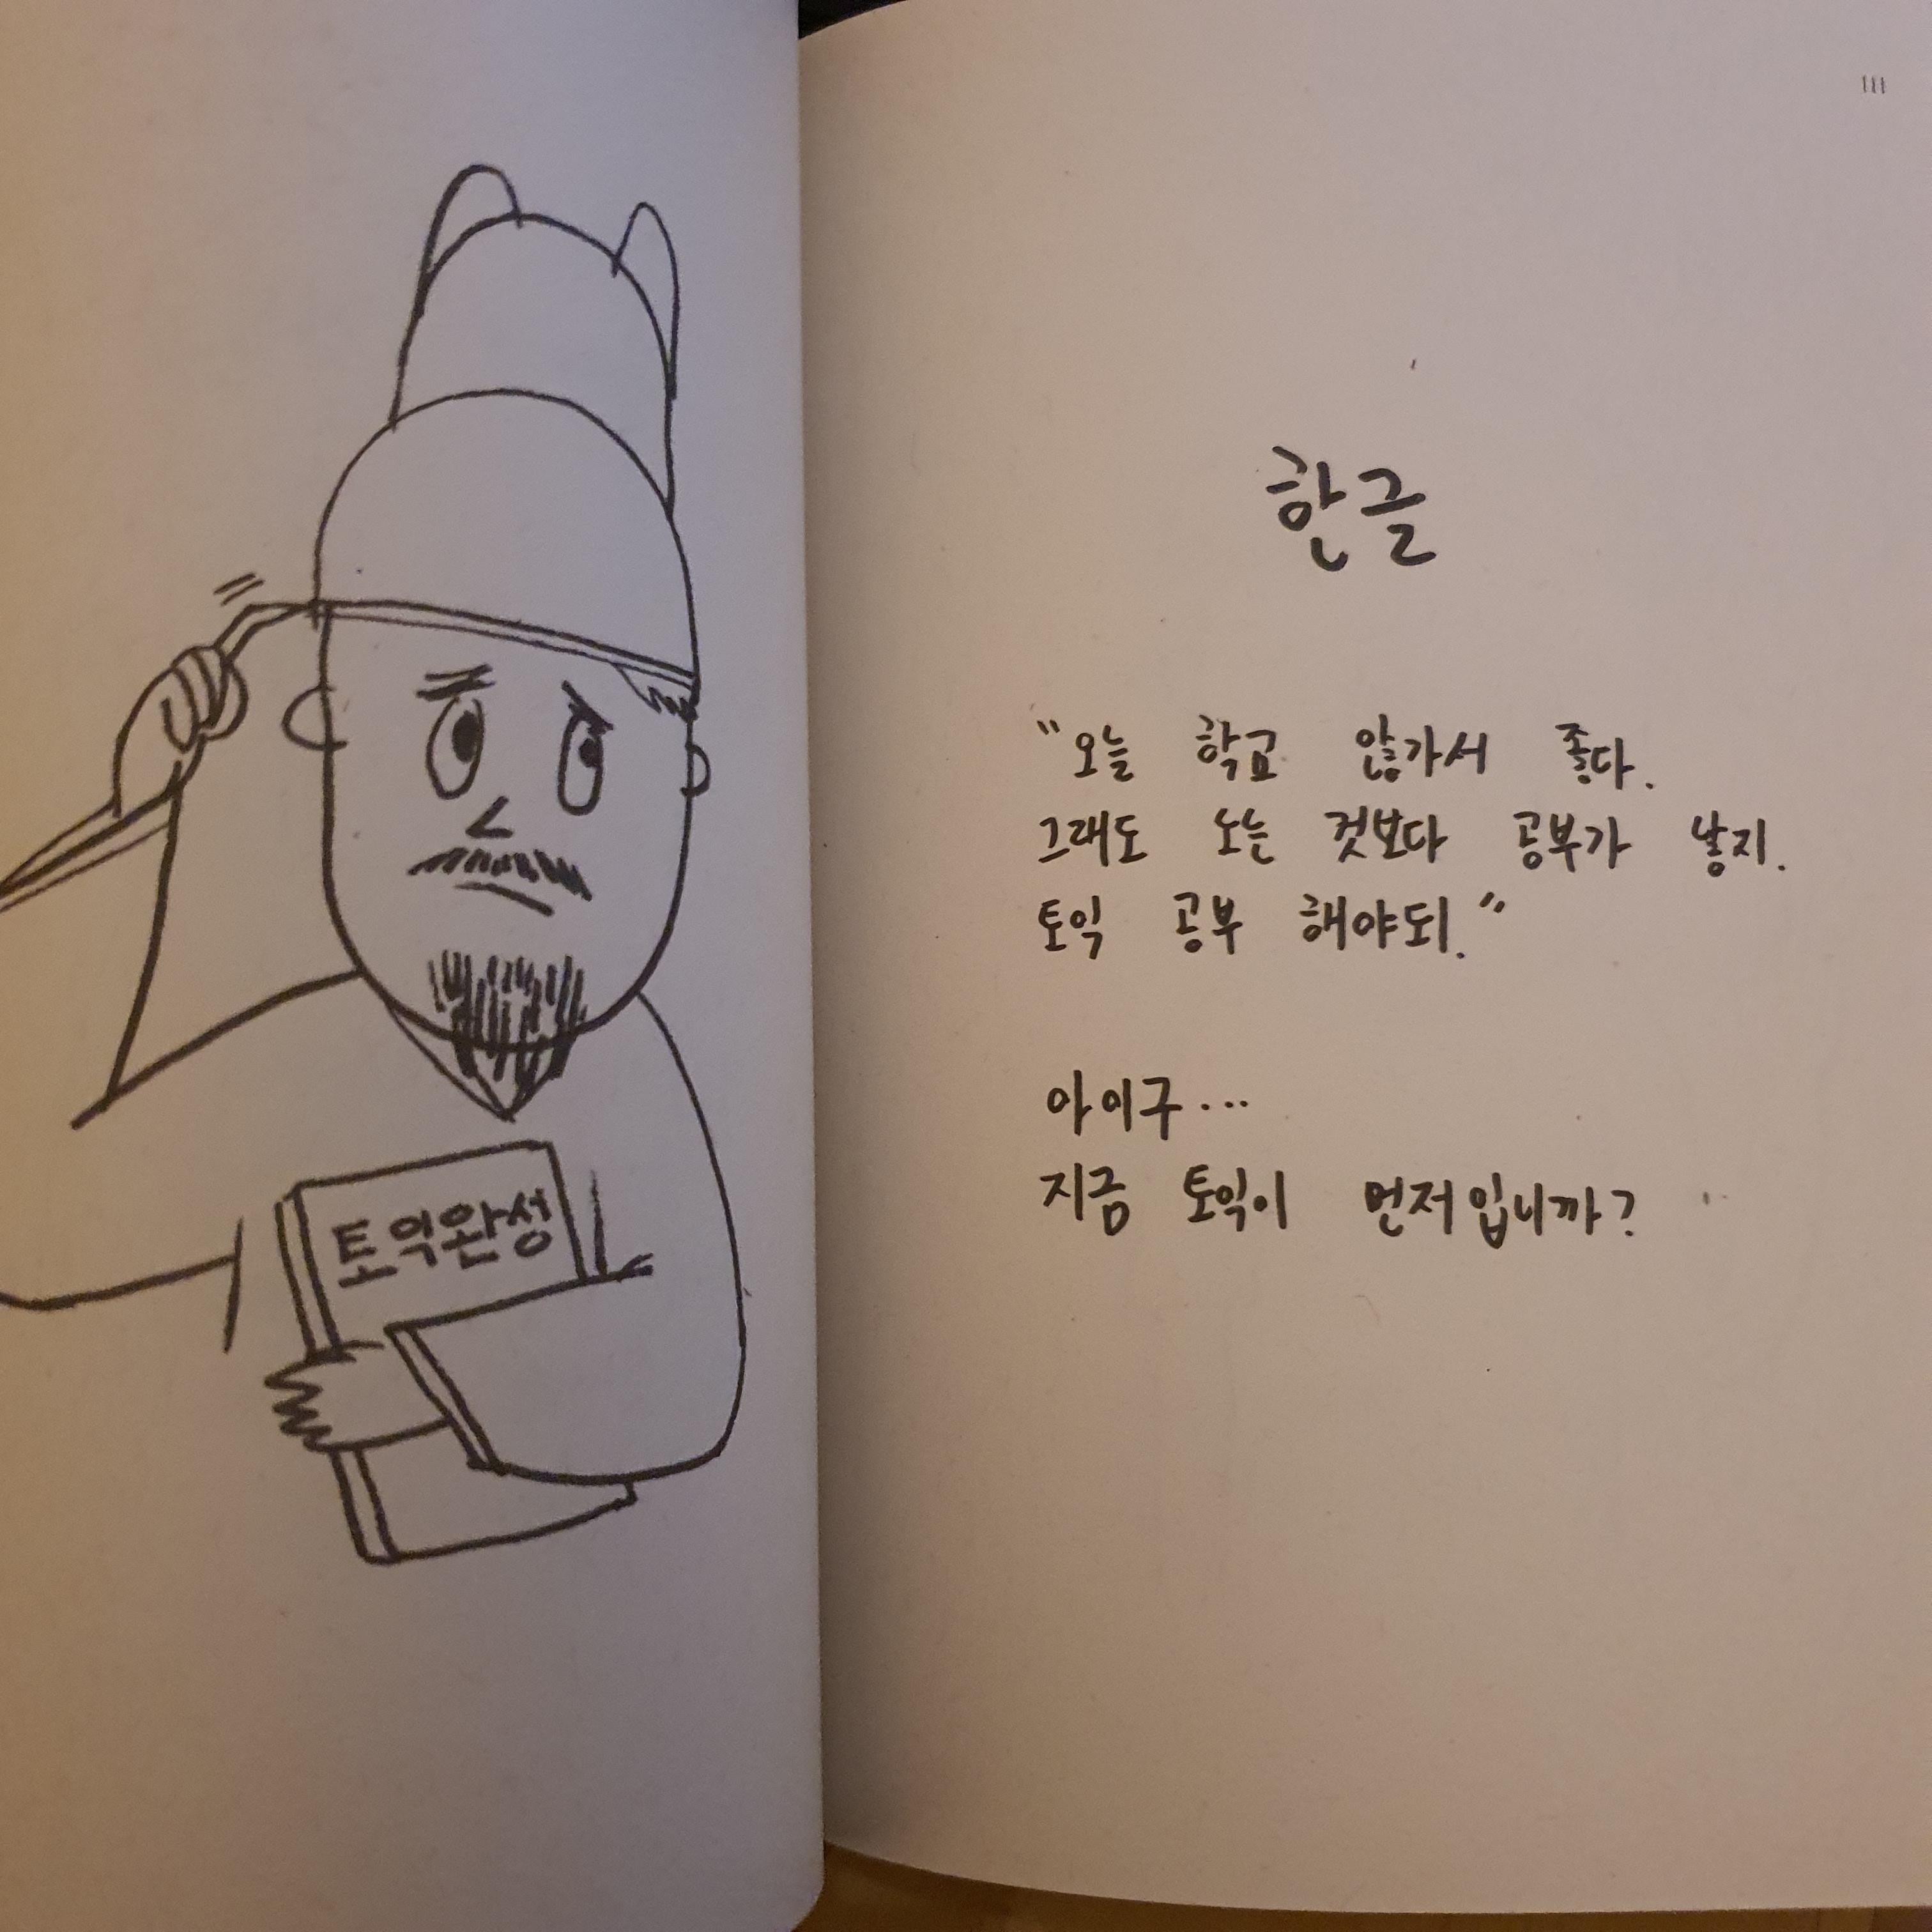 토익완성
111
한글
"오늘 학교 않가서 좋다.
그래도 노는 것보다 공부가 낳지.
토익 공부 해야되."
아이구...
지금 토익이 먼저입니까?